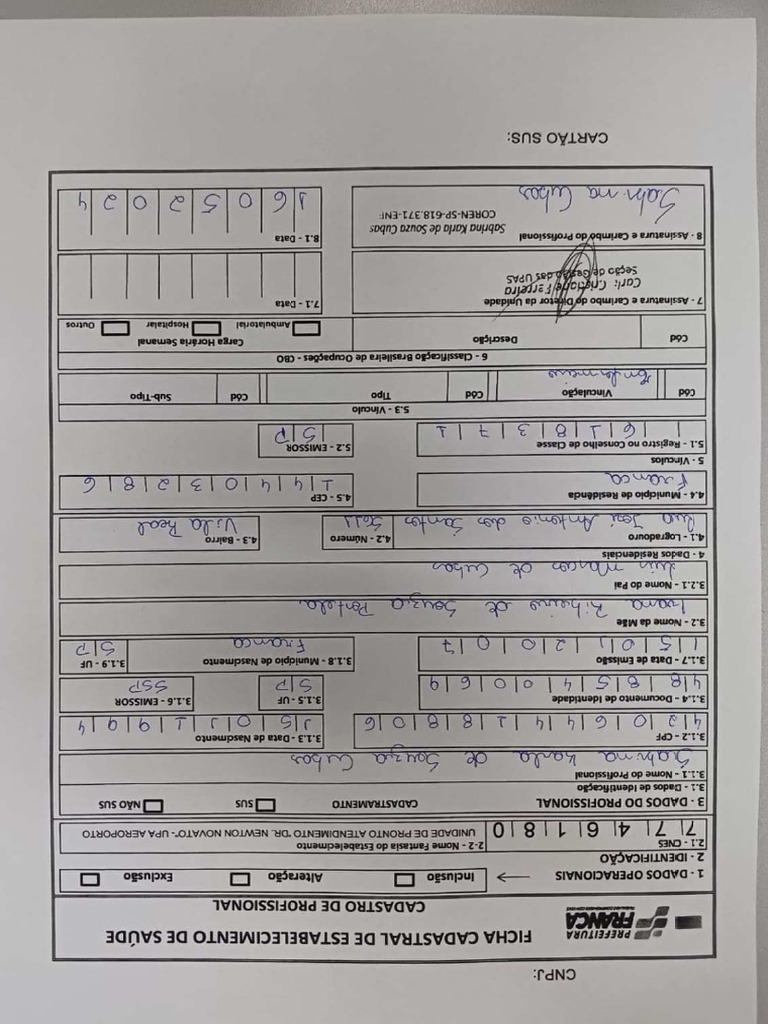 CNPJ:
PREFEITURA
FRANCA
FICHA CADASTRAL DE ESTABELECIMENTO DE SAÚDE
CADASTRO DE PROFISSIONAL
1 - DADOS OPERACIONAIS Inclusão Alteração Exclusão
2 - IDENTIFICAÇÃO
2.1 - CNES 2-2 - Nome Fantasia do Estabelecimento
7 7 4 6 1 8 0 UNIDADE DE PRONTO ATENDIMENTO "DR. NEWTON NOVATO"- UPA AEROPORTO
3 - DADOS DO PROFISSIONAL CADASTRAMENTO SUS NÃO SUS
3.1 - Dados de Identificação
3.1.1 - Nome do Profissional
Sabrina Karla de Souza Cubas
3.1.2 - CPF 3.1.3 - Data de Nascimento
4 2 0 6 4 4 1 8 8 0 6 1 5 0 1 1 9 9 4
3.1.4 - Documento de Identidade 3.1.5 - UF 3.1.6 - EMISSOR
4 8 8 5 4 0 0 6 9 S P SSP
3.1.7.1 - Data de Emissão 3.1.8 - Município de Nascimento 3.1.9 - UF
1 5 0 1 2 0 0 7 Franca S P
3.2 - Nome da Mãe
Ivana Ribeiro de Souza Portela.
3.2.1 - Nome do Pai
Luis Marcos de Cubas
4 - Dados Residenciais
4.1 - Logradouro 4.2 - Número 4.3 - Bairro
Rua José Antonio dos Santos 5611 Vila Real
4.4 - Município de Residência 4.5 - CEP
Franca 1 4 4 0 3 2 8 6
5 - Vínculos
5.1 - Registro no Conselho de Classe 5.2 - EMISSOR
6 1 8 3 7 1 S P
5.3 - Vínculo
Cód Vinculação Cód Tipo Cód Sub-Tipo
Enfermeiro
6 - Classificação Brasileira de Ocupações - CBO
Cód Descrição Carga Horária Semanal
Ambulatorial Hospitalar Outros
7 - Assinatura e Carimbo do Diretor da Unidade 7.1 - Data
Cristiane Ferreira
Seção de Gestão das UPAS
8 - Assinatura e Carimbo do Profissional 8.1 - Data
Sabrina Karla de Souza Cubas 1 6 0 5 2 0 2 4
COREN-SP-618.371-ENF
Sabrina Cubas
CARTÃO SUS: